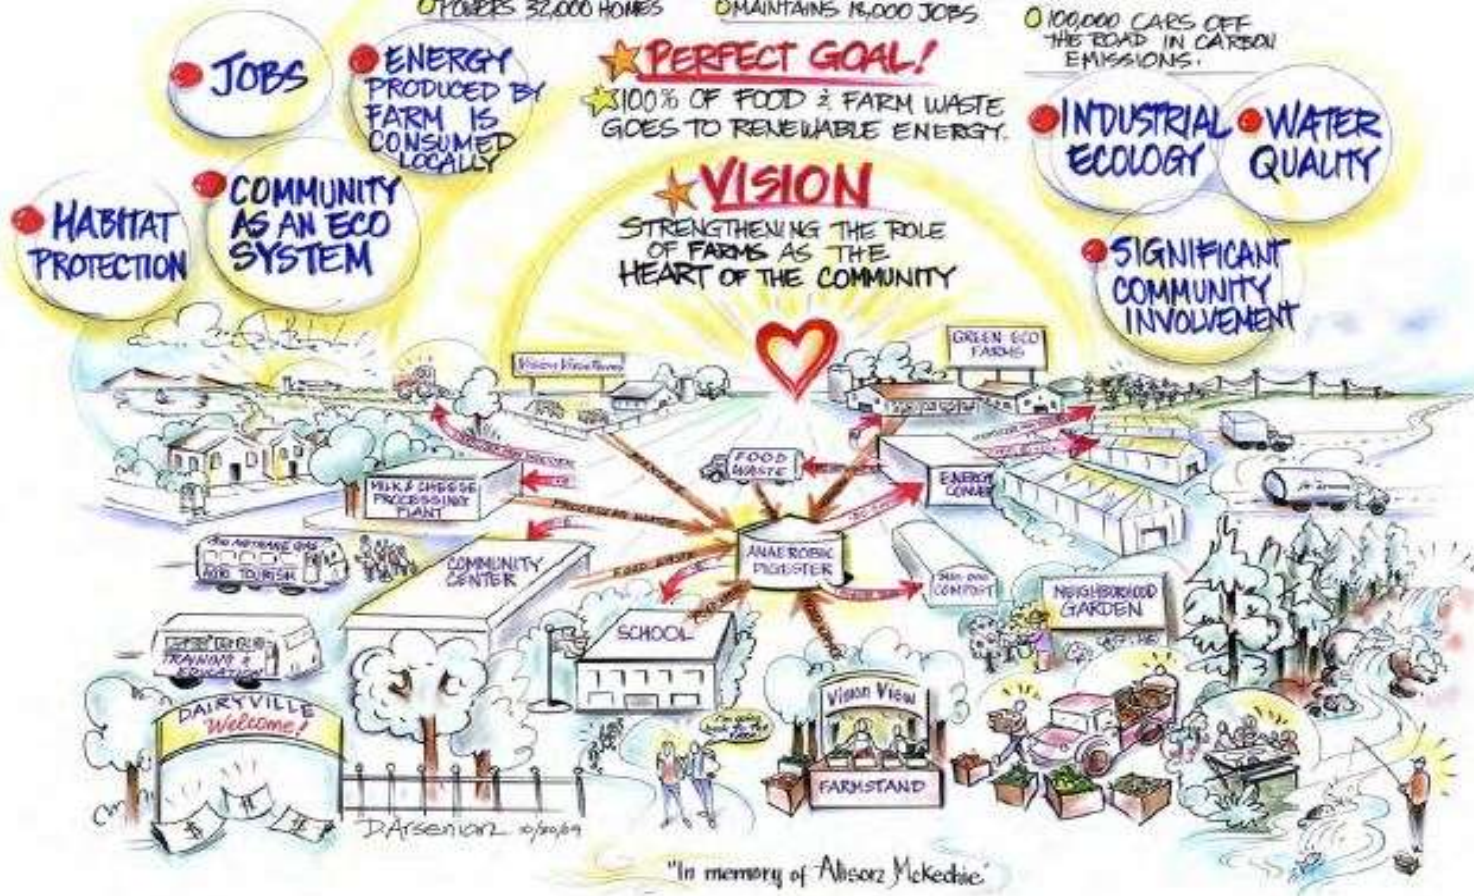 POWERS 32,000 HOMES
MAINTAINS 18,000 JOBS
100,000 CARS OFF
THE ROAD IN CARBON
EMISSIONS.
JOBS
ENERGY
PRODUCED BY
FARM IS
CONSUMED
LOCALLY
PERFECT GOAL!
100% OF FOOD & FARM WASTE
GOES TO RENEWABLE ENERGY.
INDUSTRIAL
ECOLOGY
WATER
QUALITY
HABITAT
PROTECTION
COMMUNITY
AS AN ECO
SYSTEM
VISION
STRENGTHENING THE ROLE
OF FARMS AS THE
HEART OF THE COMMUNITY
SIGNIFICANT
COMMUNITY
INVOLVEMENT
GREEN ECO
FARMS
MILK & CHEESE
PROCESSING
PLANT
FOOD
WASTE
MANURE
FOOD WASTE
ANAEROBIC
DIGESTER
COMPOST
NEIGHBORHOOD
GARDEN
COMMUNITY
CENTER
SCHOOL
TRAINING &
EDUCATION
DAIRYVILLE
Welcome!
Vision View
FARMSTAND
$
$
$
D. Arsenian 10/20/09
"In memory of Allison McKechie"